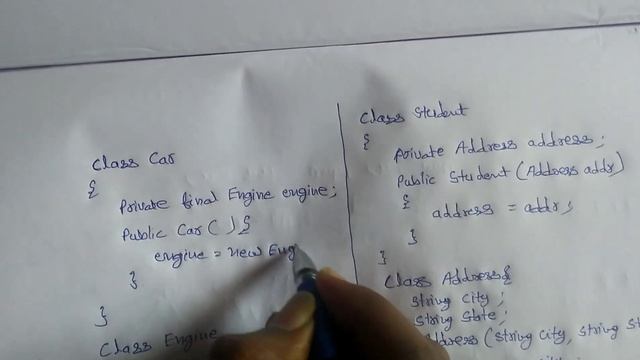 Class Car
{
Private final Engine engine;
Public Car ( ) {
engine = new Eng
}
}
Class Engine
Class Student
{
private Address address;
Public Student (Address addr)
{
address = addr;
}
}
Class Address {
String City;
String State;
Address (String City, String St